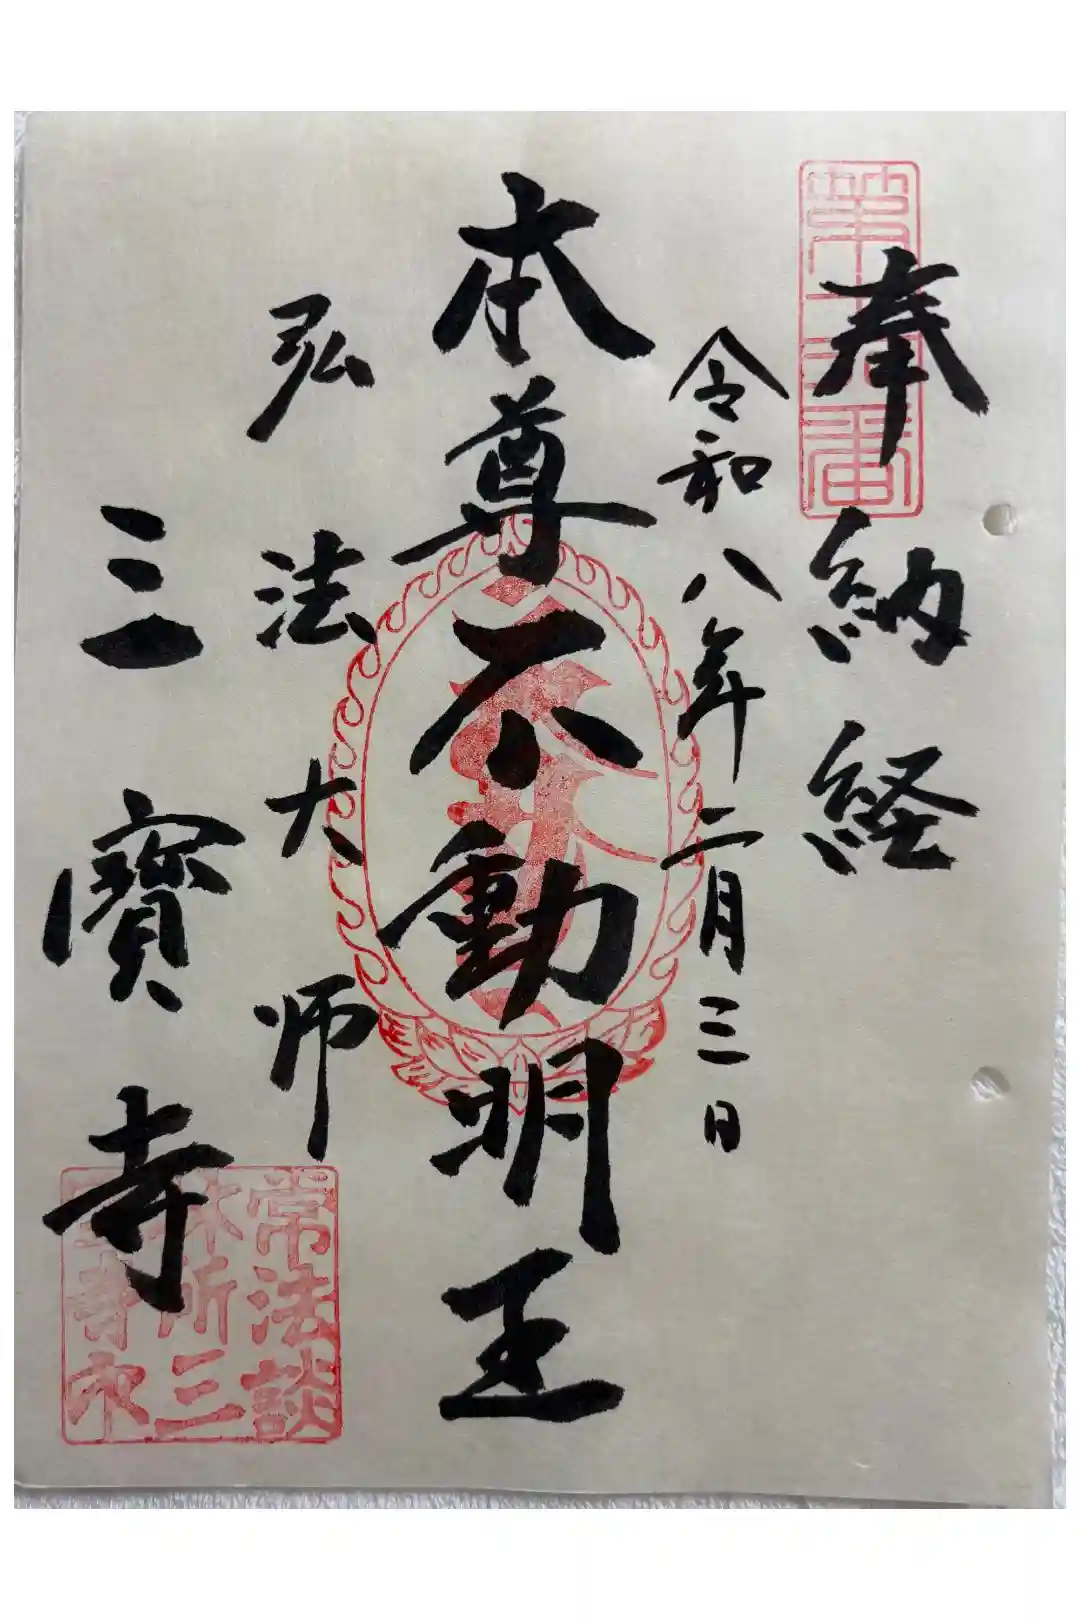 奉納経
令和八年二月三日
本尊不動明王
弘法大师
三寳寺
常法談
林所三
寺印